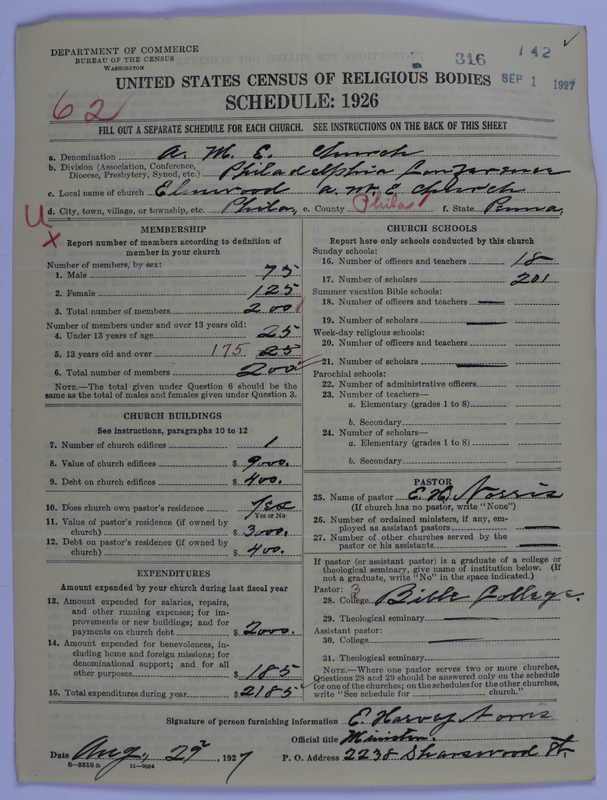 DEPARTMENT OF COMMERCE
BUREAU OF THE CENSUS
WASHINGTON
316 142
SEP 1 1927
UNITED STATES CENSUS OF RELIGIOUS BODIES
SCHEDULE: 1926
62
FILL OUT A SEPARATE SCHEDULE FOR EACH CHURCH. SEE INSTRUCTIONS ON THE BACK OF THIS SHEET
a. Denomination A. M. E. Church
b. Division (Association, Conference, Diocese, Presbytery, Synod, etc.) Philadelphia Conference
c. Local name of church Elmwood A. M. E Church
d. City, town, village, or township, etc. Phila, e. County Phila f. State Penna,
U
X
MEMBERSHIP
Report number of members according to definition of
member in your church
Number of members, by sex:
1. Male 75
2. Female 125
3. Total number of members 200
Number of members under and over 13 years old:
4. Under 13 years of age 25
5. 13 years old and over 175 25
6. Total number of members 200
NOTE.—The total given under Question 6 should be
same as the total of males and females given under Question 3.
CHURCH BUILDINGS
See instructions, paragraphs 10 to 12
7. Number of church edifices 1
8. Value of church edifices $ 9000.
9. Debt on church edifices $ 400.
10. Does church own pastor's residence? Yes
Yes or No
11. Value of pastor's residence (if owned by
church) $ 3000.
12. Debt on pastor's residence (if owned by
church) $ 400.
EXPENDITURES
Amount expended by your church during last fiscal year
13. Amount expended for salaries, repairs,
and other running expenses; for im-
provements or new buildings; and for
payments on church debt $ 2000.
14. Amount expended for benevolences, in-
cluding home and foreign missions; for
denominational support; and for all
other purposes $ 185
15. Total expenditures during year $ 2185
CHURCH SCHOOLS
Report here only schools conducted by this church
Sunday schools:
16. Number of officers and teachers 18
17. Number of scholars 201
Summer vacation Bible schools:
18. Number of officers and teachers
19. Number of scholars
Week-day religious schools:
20. Number of officers and teachers
21. Number of scholars
Parochial schools:
22. Number of administrative officers
23. Number of teachers—
a. Elementary (grades 1 to 8)
b. Secondary
24. Number of scholars—
a. Elementary (grades 1 to 8)
b. Secondary
PASTOR
25. Name of pastor E. H. Norris
(If church has no pastor, write "None")
26. Number of ordained ministers, if any, em-
ployed as assistant pastors
27. Number of other churches served by the
pastor or his assistants
If pastor (or assistant pastor) is a graduate of a college or
theological seminary, give name of institution below. (If
not a graduate, write "No" in the space indicated.)
Pastor: 3
28. College Bible College.
29. Theological seminary
Assistant pastor:
30. College
31. Theological seminary
NOTE.—Where one pastor serves two or more churches,
Questions 28 and 29 should be answered only on the schedule
for one of the churches; on the schedules for the other churches,
write "See schedule for church."
Signature of person furnishing information E. Harvey Norris
Official title Minister.
Date Aug, 29, 1927 P. O. Address 2238 Sharswood St.
8—5310 b 11—9034